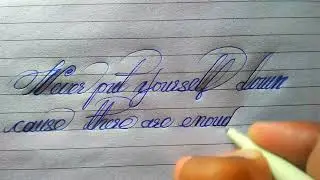 Never put yourself down
cause there are enoug